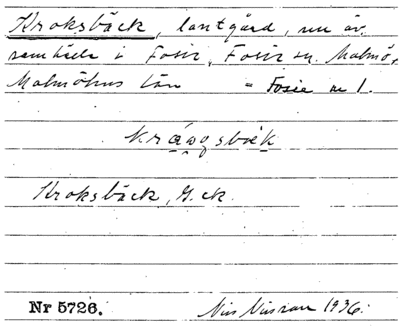 Kroksbäck, lantgård, nu äv.
samhälle i Fosie, Fosie sn. Malmö,
Malmöhus län = Fosie nr 1.
Kroksbäck, G. ek.
Nr 5726. Nils Nilsson 1936.